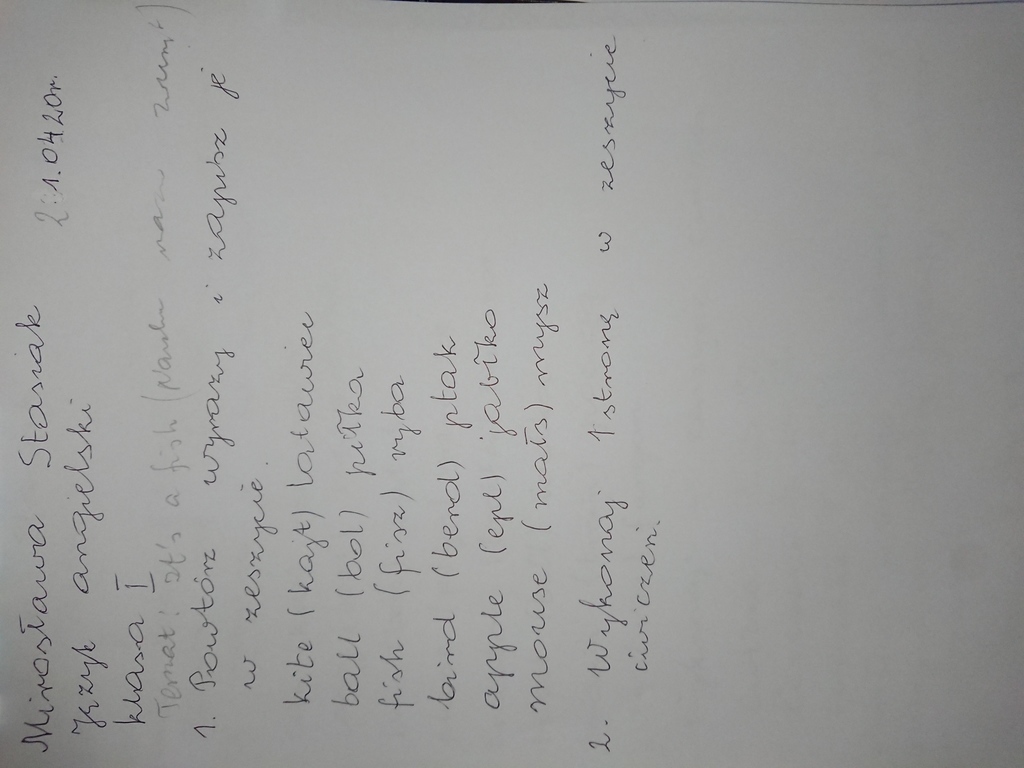 Mirosława Stasiak 21.04.20r.
język angielski
klasa I
Temat: It's a fish (
1. Powtórz wyrazy i zapisz je
w zeszycie.
kite (kajt) latawiec
ball (bol) piłka
fish (fisz) ryba
bird (berd) ptak
apple (epl) jabłko
mouse (małs) mysz
2. Wykonaj 1 stronę w zeszycie
ćwiczeń.